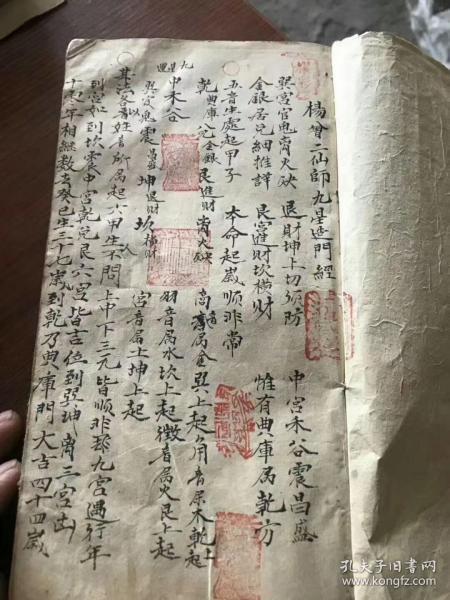 楊曾二仙師九星造門經
中宮禾谷震昌盛
巽宮官鬼离火殃
退財坤上切須防
惟有典庫居乾方
金銀居兌細推詳
艮宮進財坎橫財
五音生處起甲子
本命起歲順非常
九星遁
乾典庫 兌金銀 艮進財 离火殃
中禾谷
巽官鬼 震昌盛 坤退財 坎橫財
商音属金巽上起角音属木乾上起
羽音属水坎上起徵音属火艮上起
宮音属土坤上起
其法以各人姓音所属起六甲生不問上中下三元皆順非卦九宮遇行年
到宮如到坎震中宮乾兌艮六宮皆吉位到巽坤离三宮凶
年相継数去癸巳生三十七歲到乾乃典庫門大吉四十四歲
孔夫子旧书网
www.kongfz.com